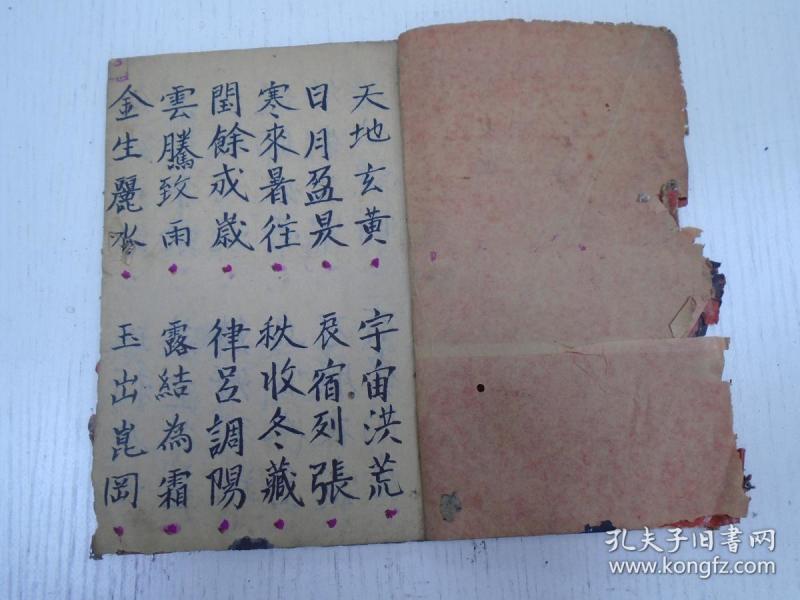 天地玄黃 宇宙洪荒
日月盈昃 辰宿列張
寒來暑往 秋收冬藏
閏餘成歲 律呂調陽
雲騰致雨 露結為霜
金生麗水 玉出崑岡
孔夫子旧书网
www.kongfz.com